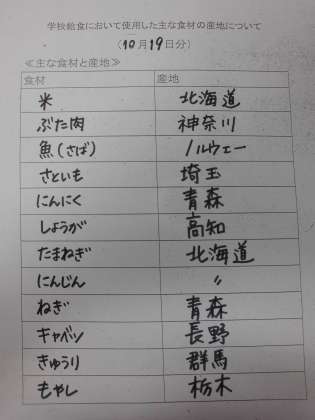 学校給食において使用した主な食材の産地について
(10月19日分)
≪主な食材と産地≫
食材 産地
米 北海道
ぶた肉 神奈川
魚(さば) ノルウェー
さといも 埼玉
にんにく 青森
しょうが 高知
たまねぎ 北海道
にんじん 〃
ねぎ 青森
キャベツ 長野
きゅうり 群馬
もやし 栃木